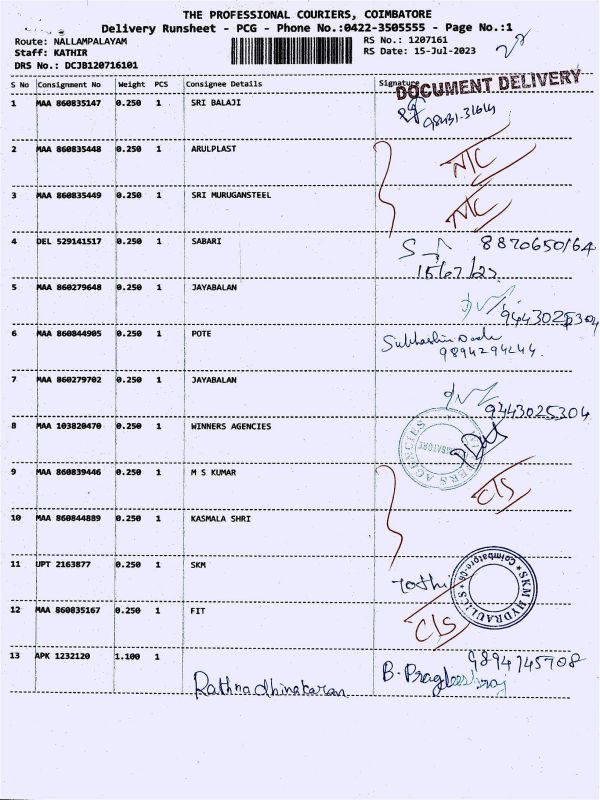 THE PROFESSIONAL COURIERS, COIMBATORE
Delivery Runsheet - PCG - Phone No.:0422-3505555 - Page No.:1
Route: NALLAMPALAYAM RS No.: 1207161
Staff: KATHIR RS Date: 15-Jul-2023
DRS No.: DCJB120716101
S No Consignment No Weight PCS Consignee Details Signature
DOCUMENT DELIVERY
1 MAA 860835147 0.250 1 SRI BALAJI
2 MAA 860835448 0.250 1 ARULPLAST NTC
3 MAA 860835449 0.250 1 SRI MURUGANSTEEL NTC
4 DEL 529141517 0.250 1 SABARI 8870650164
15/07/23
5 MAA 860279648 0.250 1 JAYABALAN 9443025304
6 MAA 860844905 0.250 1 POTE
9894294244.
7 MAA 860279702 0.250 1 JAYABALAN 9443025304
8 MAA 103820470 0.250 1 WINNERS AGENCIES
9 MAA 860839446 0.250 1 M S KUMAR C/S
10 MAA 860844889 0.250 1 KASMALA SHRI
11 UPT 2163877 0.250 1 SKM
SKM HYDRAULICS * Coimbatore-06 *
12 MAA 860835167 0.250 1 FIT C/S
13 APK 1232120 1.100 1 9894745708
Rathnadhinakaran